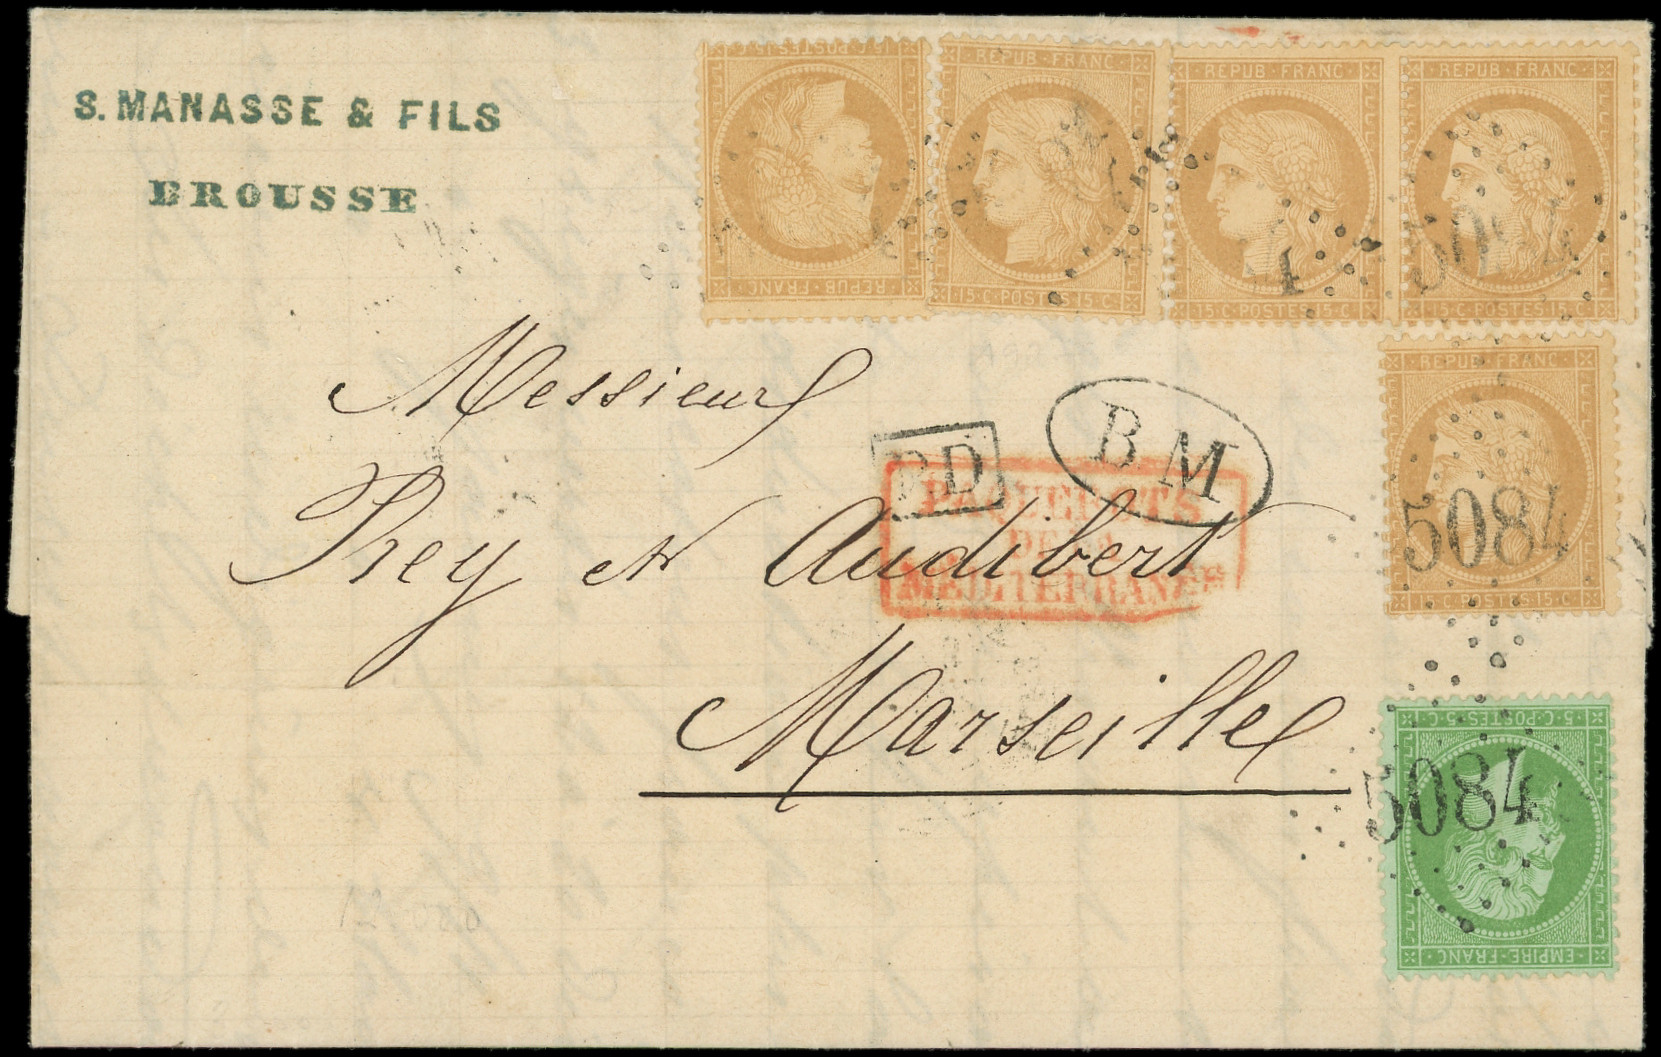 S. MANASSE & FILS
BROUSSE
15·C·POSTES·15·C
REPUB·FRANC
REPUB·FRANC
15·C·POSTES·15·C
REPUB·FRANC
15·C·POSTES·15·C
REPUB·FRANC
15·C·POSTES·15·C
5084
REPUB·FRANC
15·C·POSTES·15·C
5084
Messieurs
PD
B M
PAQUEBOTS
DE LA
MEDITERRANEE
Rey et Audibert
Marseille
5·C·POSTES·5·C
EMPIRE·FRANC
5084